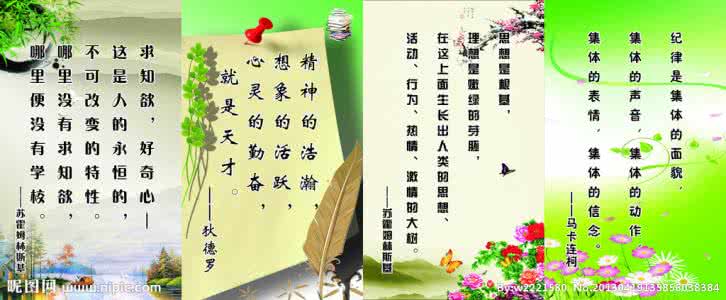 求知欲，好奇心—
这是人的永恒的，
不可改变的特性。
哪里没有求知欲，
哪里便没有学校。
——苏霍姆林斯基
精神的浩瀚，
想象的活跃，
心灵的勤奋，
就是天才。
——狄德罗
思想是根基，
理想是嫩绿的芽胚，
在这上面生长出人类的思想、
活动、行为、热情、激情的大树。
——苏霍姆林斯基
纪律是集体的面貌，
集体的声音，集体的动作，
集体的表情，集体的信念。
——马卡连柯
昵图网 www.nipic.com
By:w2221980 No.20130419135858038384